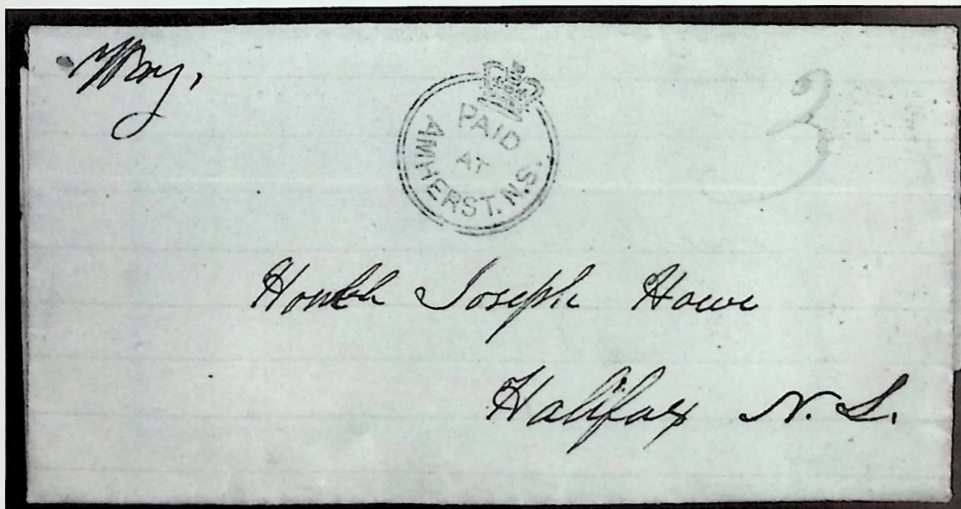 3
PAID
AT
AMHERST. N.S.
Honble Joseph Howe
Halifax N.S.